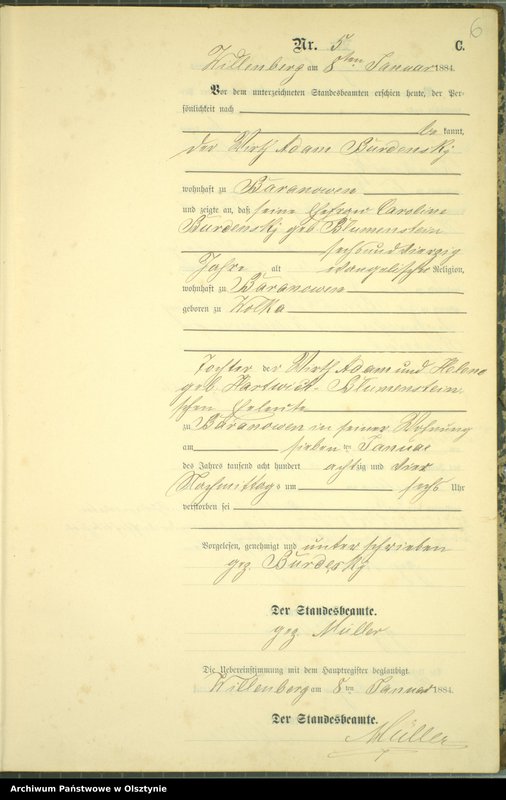 6
Nr. 5 C.
Willenberg am 8ten Januar 1884.
Vor dem unterzeichneten Standesbeamten erschien heute, der Per-
sönlichkeit nach
be kannt,
der Wirth Adam Burdensky
wohnhaft zu Baranowen
und zeigte an, daß seine Ehefrau Caroline
Burdensky geb. Blumenstein
sechsundvierzig
Jahre alt evangelischer Religion,
wohnhaft zu Baranowen
geboren zu Kolka
Tochter der Wirth Adam und Helene
geb. Hartwich-Blumenstein
schen Eheleute
zu Baranowen in seiner Wohnung
am sieben ten Januar
des Jahres tausend acht hundert achtzig und vier
Nachmittags um sechs Uhr
verstorben sei
Vorgelesen, genehmigt und unterschrieben
gez. Burdesky
Der Standesbeamte.
gez. Müller
Die Uebereinstimmung mit dem Hauptregister beglaubigt.
Willenberg am 8ten Januar 1884.
Der Standesbeamte.
Müller
Archiwum Państwowe w Olsztynie